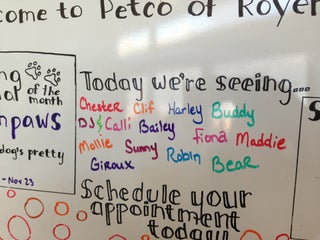 come to Petco of Royer
of the
month
paws
dog's pretty
- Nov 23
Today We're seeing...
Chester Clif Harley Buddy
DJ & Calli Bailey Fiona Maddie
Mollie Sunny Robin Bear
Giroux
Schedule your
appointment
today!